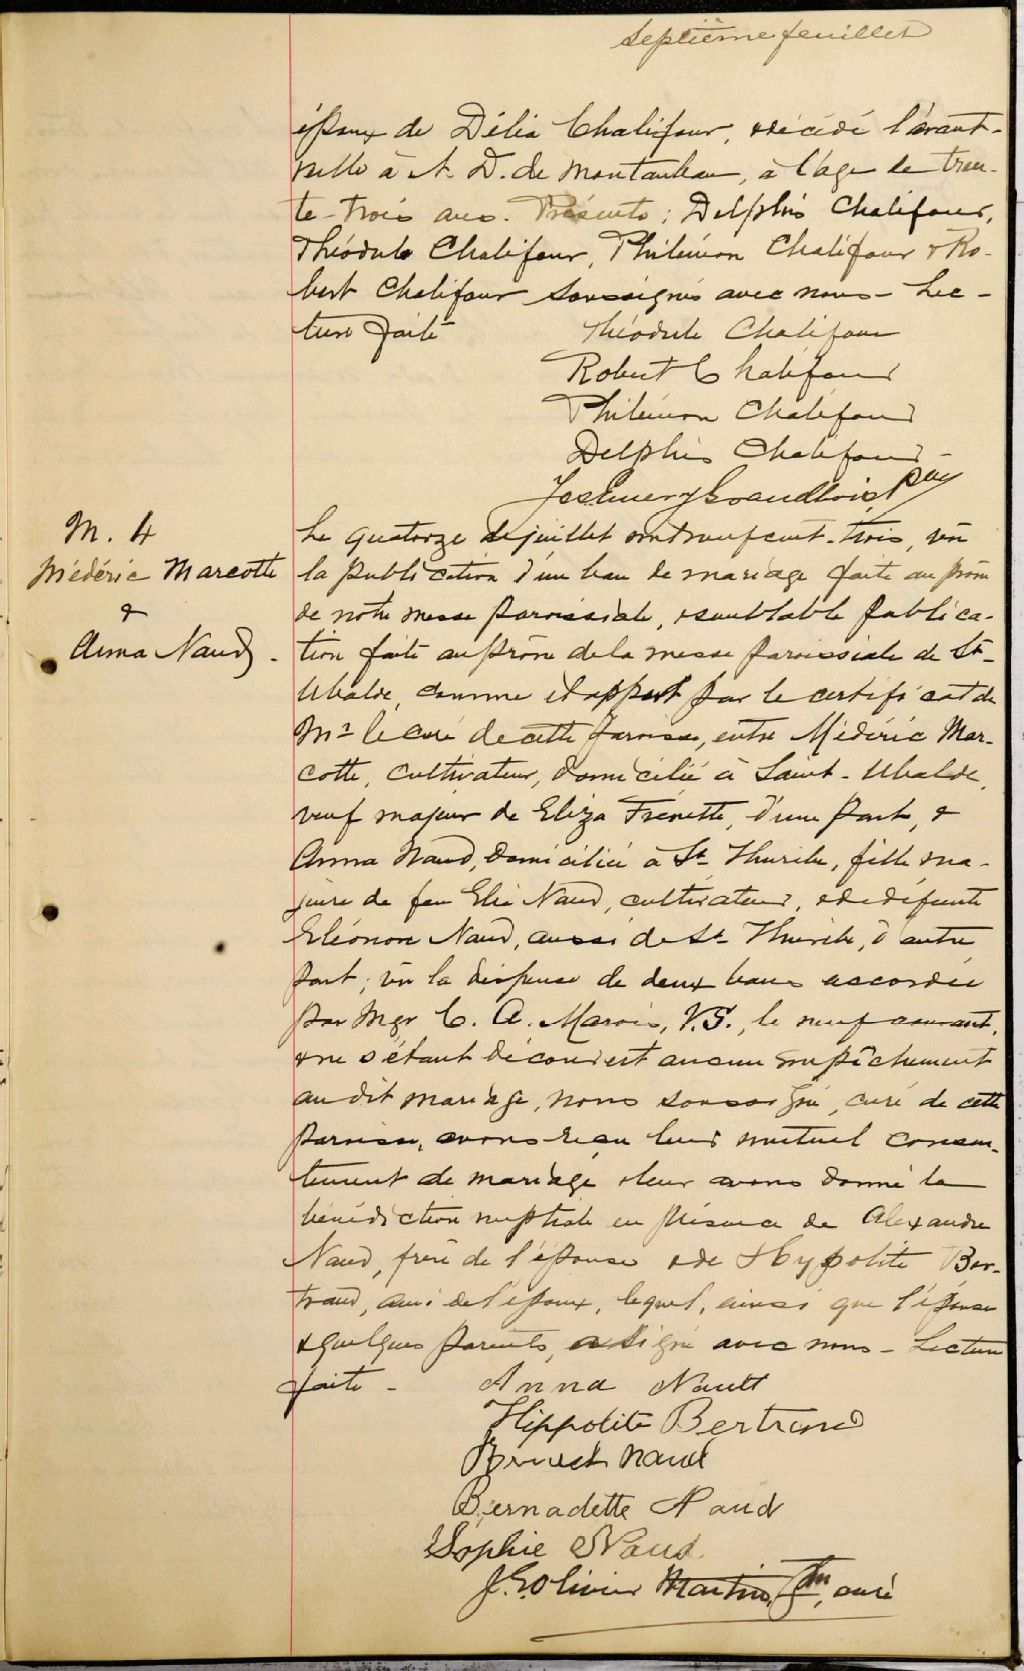 Septième feuillet
époux de Délia Chalifour, décédé l'avant-
veille à N. D. de Montauban, à l'age de tren-
te-trois ans. Présents; Delphis Chalifour,
Théodule Chalifour, Philémon Chalifour & Ro-
bert Chalifour soussignés avec nous - Lec-
ture faite
Théodule Chalifour
Robert Chalifour
Philémon Chalifour
Delphis Chalifour
M. 4
Médéric Marcotte
&
Anna Naud.
Le quatorze de juillet mil neuf cent-trois, vu
la publication d'un ban de mariage faite au prône
de notre messe paroissiale, & semblable publica-
tion faite au prône de la messe paroissiale de St-
Ubalde, comme il appert par le certificat de
Mr le curé de cette paroisse, entre Médéric Mar-
cotte, cultivateur, domicilié à Saint-Ubalde,
veuf majeur de Eliza Frenette, d'une part, &
Anna Naud, domiciliée à St-Thuribe, fille ma-
jeure de feu Elie Naud, cultivateur, & de défunte
Eléonore Naud, aussi de St-Thuribe, d'autre
part; vu la dispense de deux bans accordée
par Mgr C. A. Marois, V.G., le neuf courant,
& ne s'étant découvert aucun empêchement
au dit mariage, nous soussigné, curé de cette
paroisse, avons reçu leur mutuel consen-
tement de mariage & leur avons donné la
bénédiction nuptiale en présence de Alexandre
Naud, frère de l'épouse & de Hypolite Ber-
trand, ami de l'époux, lequel, ainsi que l'épouse
& quelques parents, a signé avec nous - Lecture
faite -
Anna Nault
Hippolite Bertrand
Ernest Naud
Bernadette Naud
Sophie Naud.
J. E. Olivier Martin, Ptre, curé